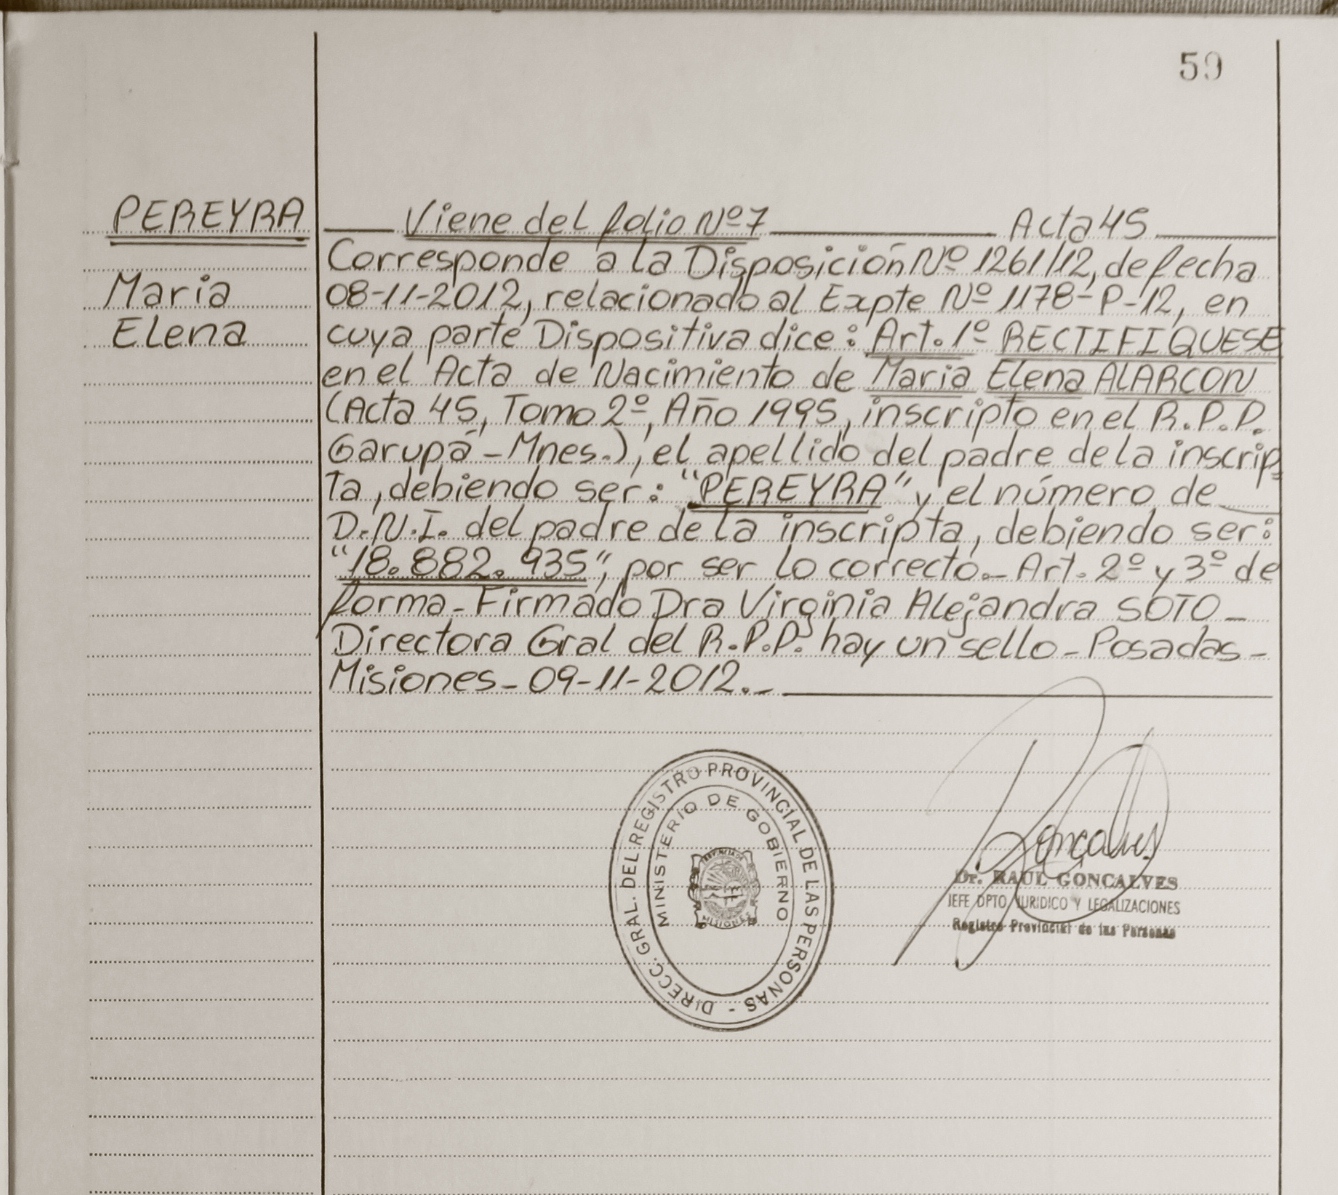 59
PEREYRA
Maria
Elena
Viene del folio Nº7 Acta 45
Corresponde a la Disposición Nº 1261/12, de fecha
08-11-2012, relacionado al Expte Nº 1178-P-12, en
cuya parte Dispositiva dice: Art. 1º RECTIFIQUESE
en el Acta de Nacimiento de Maria Elena ALARCON
(Acta 45, Tomo 2º, Año 1995, inscripto en el R.P.P.
Garupá - Mnes.), el apellido del padre de la inscrip
ta, debiendo ser: "PEREYRA" y el número de
D.N.I. del padre de la inscripta, debiendo ser:
"18.882.935", por ser lo correcto.- Art. 2º y 3º de
forma - Firmado Dra Virginia Alejandra SOTO -
Directora Gral del R.P.P. hay un sello - Posadas -
Misiones - 09-11-2012.-
DIRECC. GRAL. DEL REGISTRO PROVINCIAL DE LAS PERSONAS -
MINISTERIO DE GOBIERNO
MISIONES
Gonçalves
Dr. RAUL GONCALVES
JEFE DPTO JURIDICO Y LEGALIZACIONES
Registro Provincial de las Personas